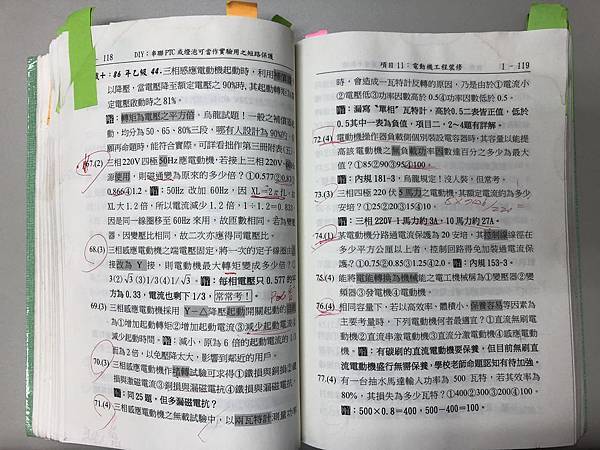 118 DIY：串聯PTC或燈泡可當作實驗用之短路保護
86年乙級44.三相感應電動機起動時，利用
以降壓，當電壓降至額定電壓之90%時，其起動轉矩為
定電壓啟動時之81%。
：轉矩為電壓之平方倍，烏龍試題！一般之補償
動，均分為50、65、80%三段，哪有人設計為90%的
願再命題時，能符合實際，可詳看拙作第三冊附表(五)
67.(2)三相220V四極50Hz感應電動機，若接上三相220V、60
源使用，則磁通變為原來的多少倍？①0.577②0.83
0.866④1.2。：50Hz改加60Hz，因XL=2πfL，故
XL大1.2倍，所以電流減少1.2倍，1÷1.2=0.833
因是同一線圈移至60Hz來用，故匝數相同。若為變壓
器，因變壓比相同，故二次亦應得同電壓比。
68.(3)三相感應電動機之端電壓固定，將一次的定子線圈由
接改為Y接，則電動機最大轉矩變成多少倍？①
3②√3③1/3④1/√3。：每相電壓只0.577的平
方為0.33，電流也剩下1/3，常常考！
69.(3)三相感應電動機採用Y－△降壓起動開關起動的
為①增加起動轉矩②增加起動電流③減少起動電流
減少起動時間。：減小，原為6倍的起動電流的1/3
暫為2倍，以免壓降太大，影響到鄰近的用戶。
70.(3)三相感應電動機作堵轉試驗可求得①鐵損與銅損②鐵
損與激磁電流③銅損與漏磁電抗④鐵損與漏磁電抗
：同25題，但多漏磁電抗？
71.(4)三相感應電動機之無載試驗中，以兩瓦特計測量功率
項目11：電動機工程裝修 1－119
時，會造成一瓦特計反轉的原因，乃是由於①電流小
②電壓低③功率因數高於0.5④功率因數低於0.5。
：漏寫“單相”瓦特計，高於0.5二表皆正值，低於
0.5其中一表為負值，項目二，2～4題有詳解。
72.(4)電動機操作器負載側個別裝設電容器時，其容量以能提
高該電動機之無負載功率因數達百分之多少為最大
值？①85②90③95④100。
：內規181-3，烏龍規定！沒人裝，但常考。
73.(3)三相四極220伏5馬力之電動機，其額定電流約為多少
安培？①25②20③15④10。
：三相220V 1馬力約3A，10馬力約27A。
74.(1)某電動機分路過電流保護為20安培，其控制線線徑在
多少平方公厘以上者，控制回路得免加裝過電流保
護？①0.75②0.85③1.25④2.0。：內規153-3。
75.(4)能將電能轉換為機械能之電工機械稱為①變壓器②變
頻器③發電機④電動機。
76.(4)相同容量下，若以高效率、體積小、保養容易等因素為
主要考量時，下列電動機何者最適宜？①直流無刷電
動機②直流串激電動機③直流分激電動機④感應電動
機。：有碳刷的直流電動機要保養，但目前無刷直
流電動機盛行無需保養，學校老師命題認知有待加強。
77.(4)有一台抽水馬達輸入功率為500瓦特，若其效率為
80%，其損失為多少瓦特？①400②300③200④100。
：500×0.8=400，500-400=100。